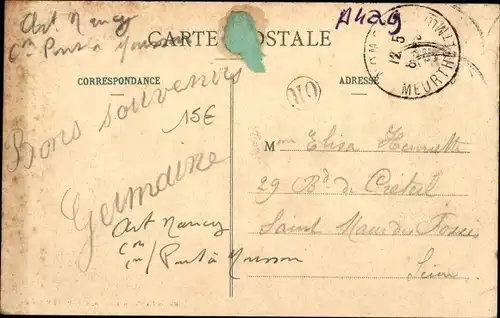 Art Nancy
Con Pont à Mousson
A429
CARTE POSTALE
CORRESPONDANCE
ADRESSE
OR
12 5
MEURTHE
Bons souvenirs
15€
Germaine
Mme Elisa Henriette
29 Bd de Créteil
Saint Maur des Fossés
Seine
Art Nancy
Con
Pont à Mousson